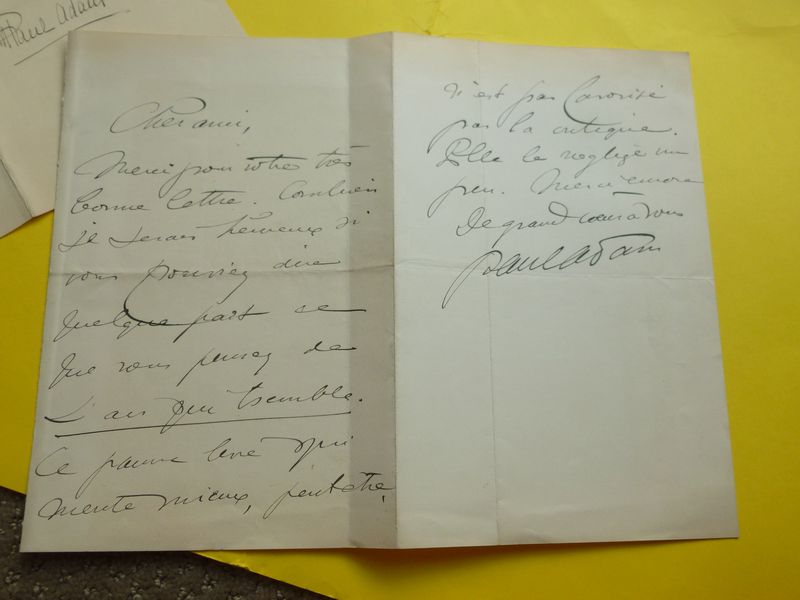 Paul Adam
Cher ami,
Merci pour votre très
bonne lettre. Combien
je serais heureux si
vous pouviez dire
quelque part ce
que vous pensez de
L'air qui tremble.
Ce pauvre livre qui
mérite mieux, peut être,
n'est pas favorisé
par la critique.
Elle le néglige un
peu. Merci encore
De grand cœur à vous
Paul Adam